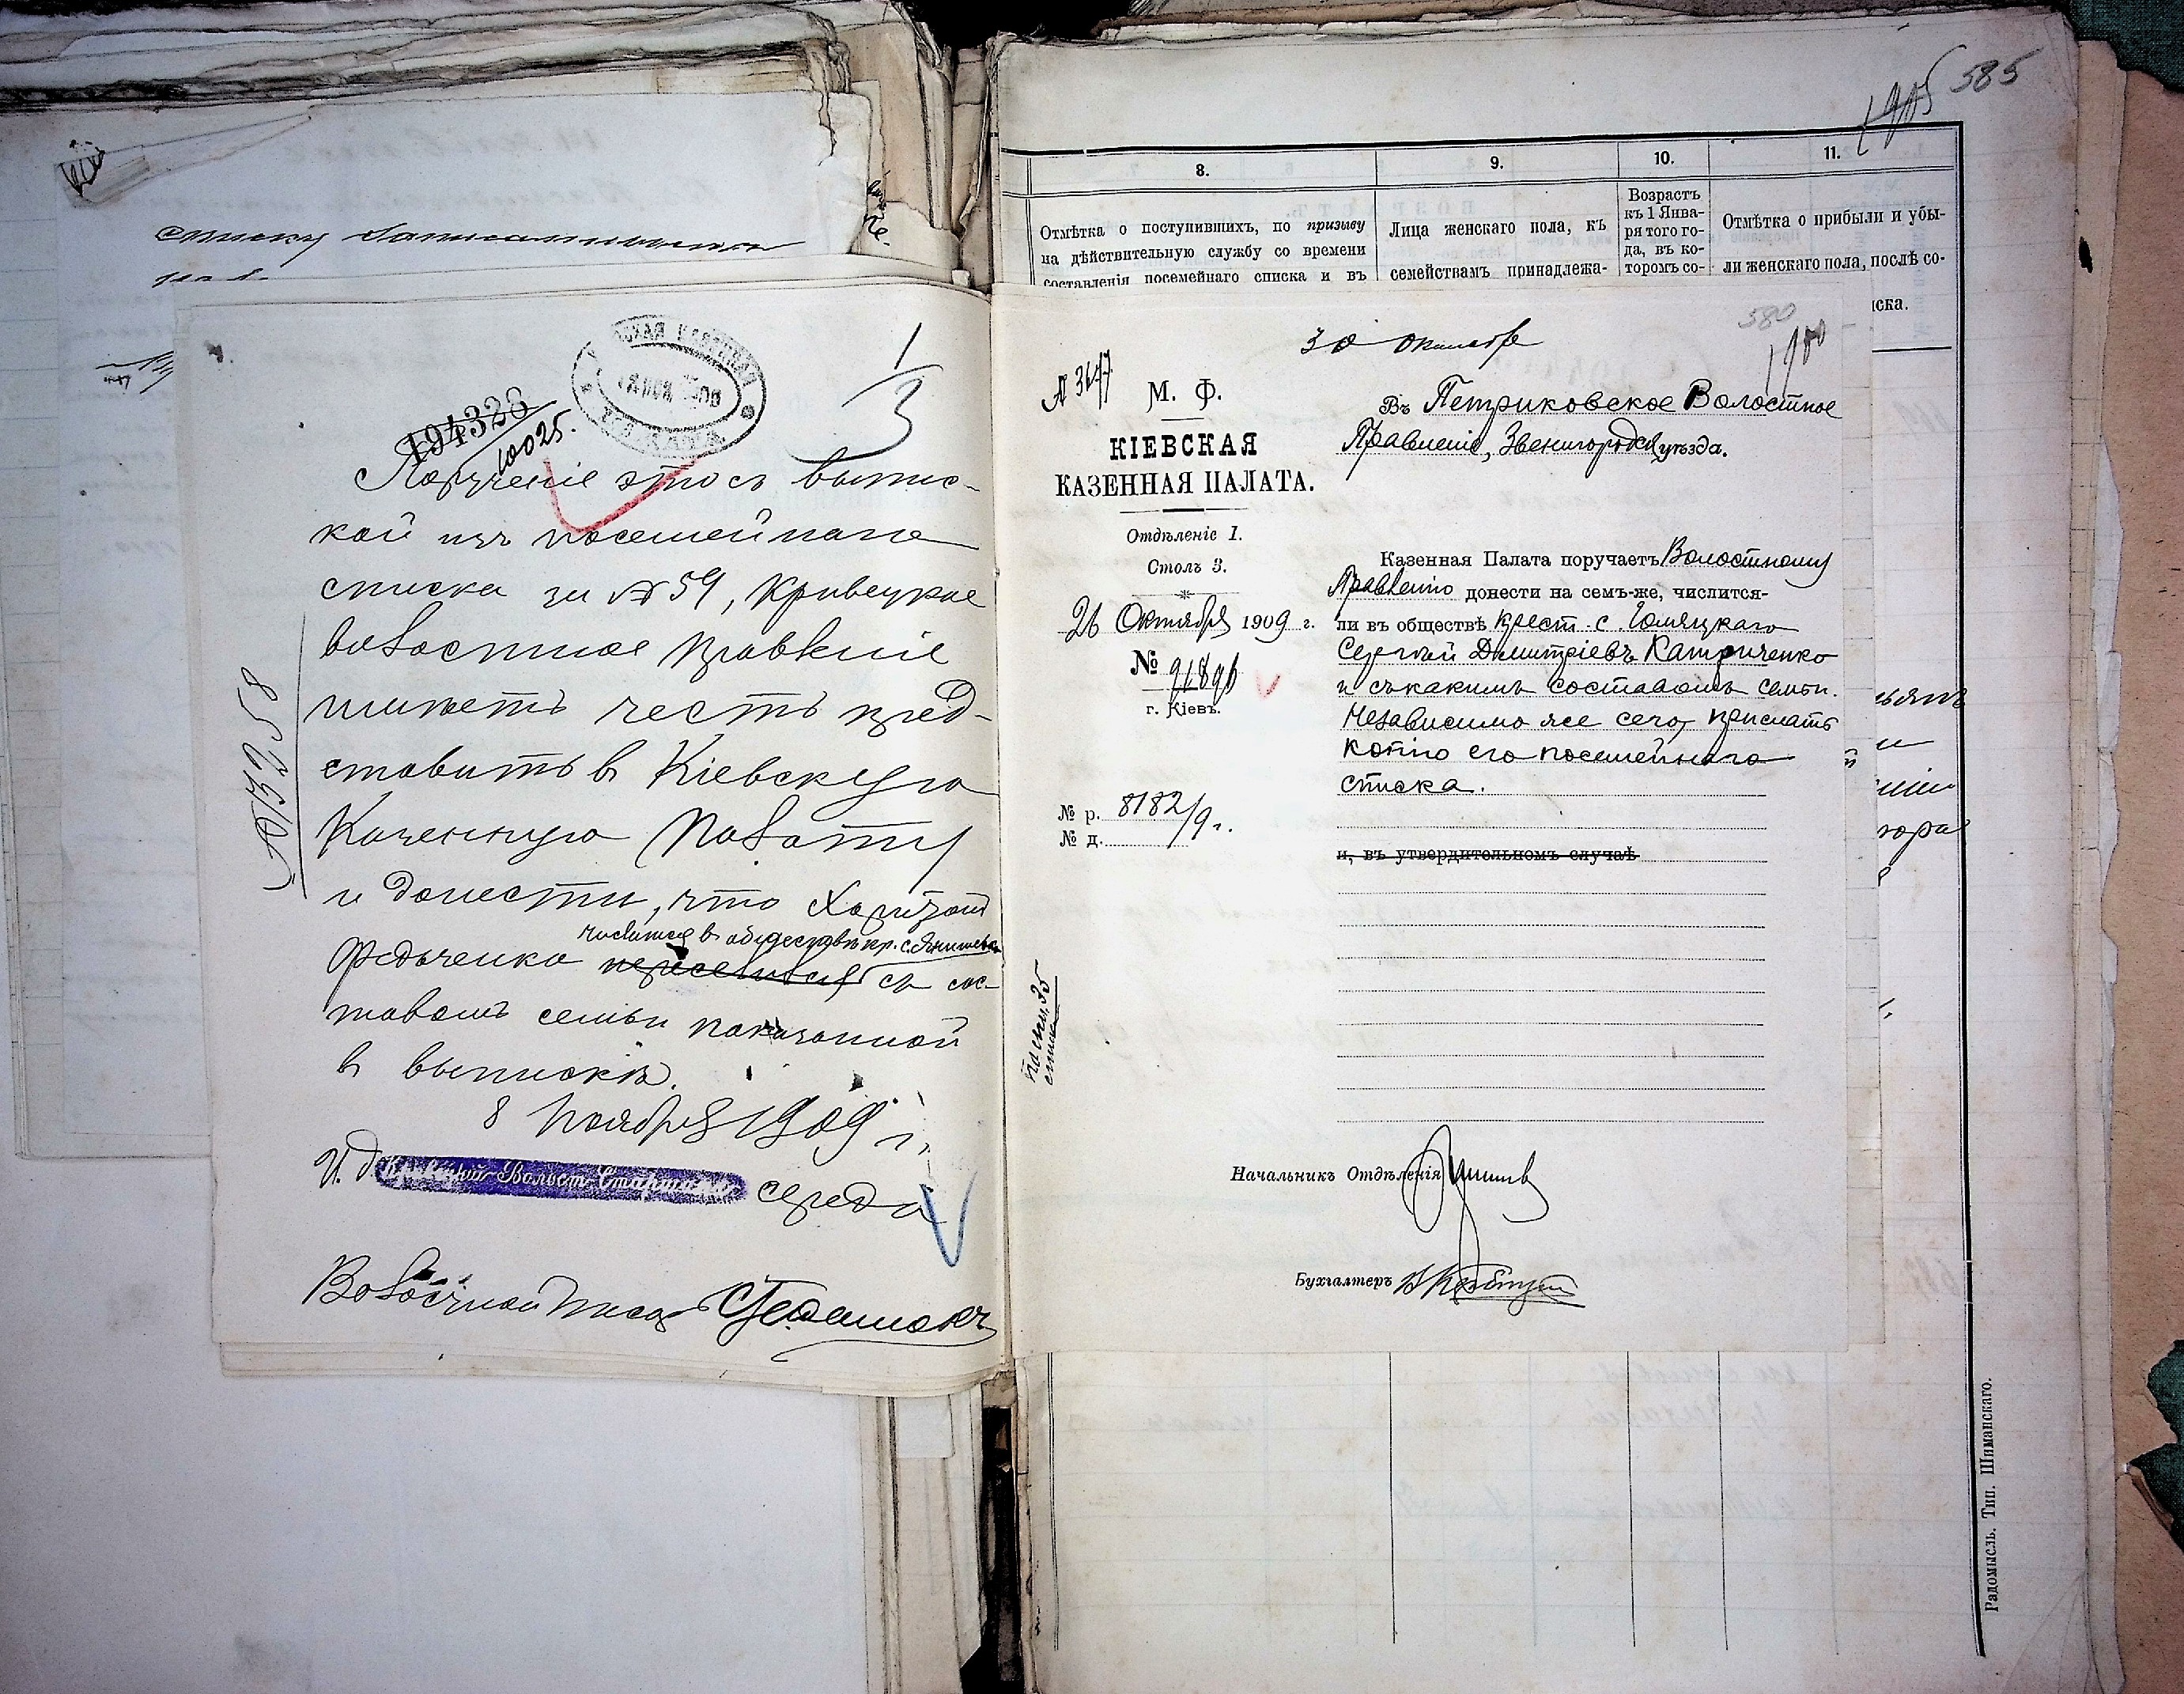 списку
194326
10025.
1/3
Порученіе это съ выпис-
кой изъ посемейнаго
списка за № 59, Кривецкое
волостное правленіе
имѣетъ честь пред-
ставить в Кіевскую
Казенную Палату
и донести, что Харитон
числится в обществѣ кр. с.
Федченко переселился съ сос-
тавомъ семьи показанной
в выпискѣ.
8 Ноября 1909 г.
И. д. Кривецкій Волост. Старшина Середа
Волостной Писарь
№ 3258
585
1905
8.
9.
10.
11.
Отмѣтка о поступившихъ, по призыву
на дѣйствительную службу со времени
составленія посемейнаго списка и въ
Лица женскаго пола, къ
семействамъ принадлежа-
Возрастъ
къ 1 Янва-
ря того го-
да, въ ко-
торомъ со-
Отмѣтка о прибыли и убы-
ли женскаго пола, послѣ со-
иска.
580
30 Октября
№ 3647
М. Ф.
КІЕВСКАЯ
КАЗЕННАЯ ПАЛАТА.
Отдѣленіе 1.
Столъ 3.
26 Октября 1909 г.
№
г. Кіевъ.
№ р. 8182/9 г.
№ д.
Въ Петриковское Волостное
Правленіе, Звенигородск уѣзда.
Казенная Палата поручаетъ Волостному
Правленію донести на семъ-же, числится-
ли въ обществѣ крест. с.
Сергѣй Дмитріевъ Катриченко
и съ какимъ составомъ семьи.
Независимо же сего, прислать
копію его посемейнаго
списка.
и, въ утвердительномъ случаѣ
Начальникъ Отдѣленія
Бухгалтеръ
Радомысль. Тип. Шиманскаго.